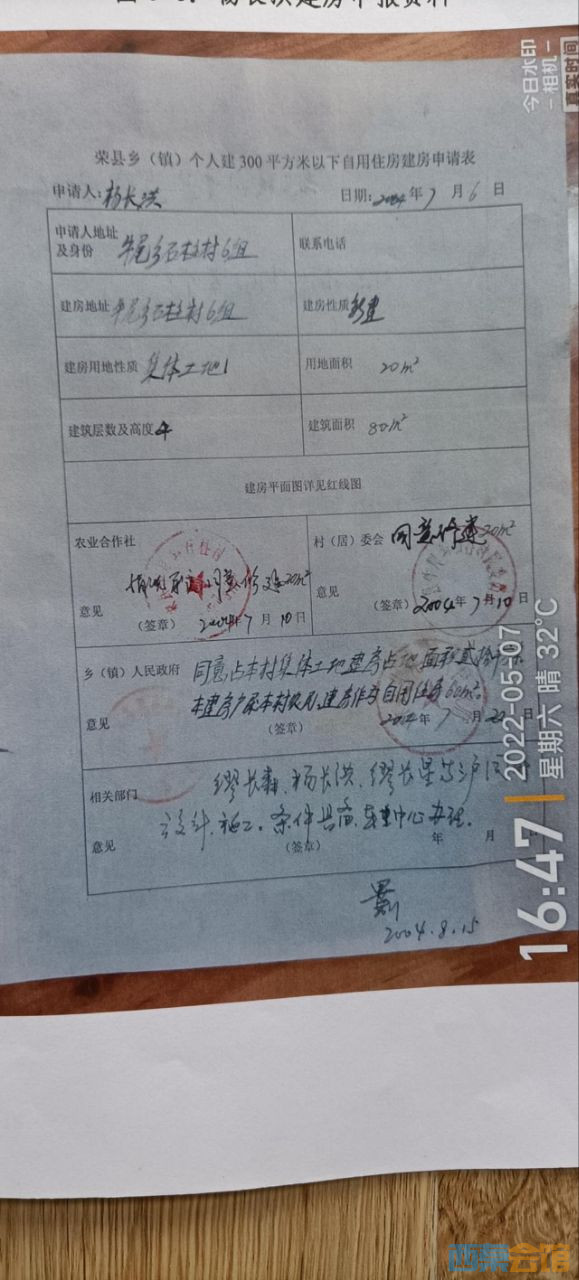 荣县乡（镇）个人建300平方米以下自用住房建房申请表
申请人：杨长洪 日期：2004年7月6日
申请人地址及身份 牛尾乡石柱村6组 联系电话
建房地址 牛尾乡石柱村6组 建房性质 新建
建房用地性质 集体土地 用地面积 20m²
建筑层数及高度 4 建筑面积 80m²
建房平面图详见红线图
农业合作社 村（居）委会 同意修建20m²
同意修建20m²
意见 意见
（签章） 2004年7月10日 （签章） 2004年7月10日
乡（镇）人民政府 同意占本村集体土地建房占地面积贰拾
本建房户系本村农民，建房作为自用住房
意见 （签章） 2004年7月
相关部门 缪长森、杨长洪、缪长星
设计、施工。条件具备，中心办理。
意见 （签章） 年 月
2004.8.15
今日水印
-相机-
真实时间
16:47
2022-05-07
星期六 晴 32℃
西祠会馆